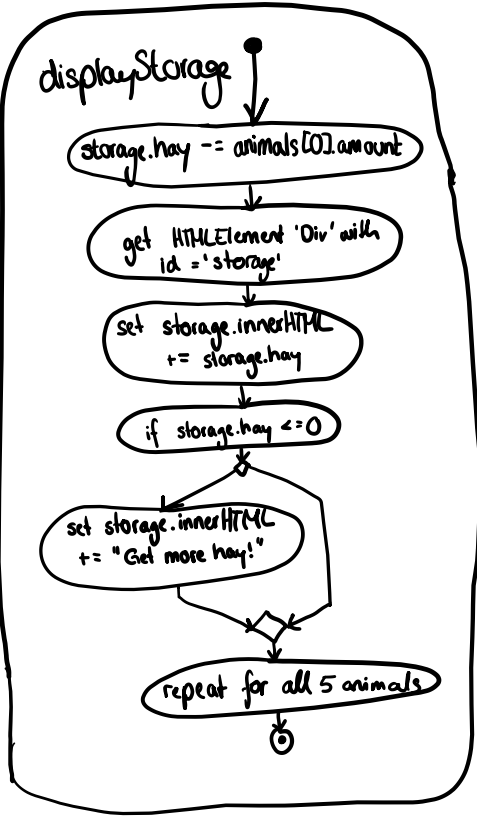 displayStorage
storage.hay -= animals[0].amount
get HTMLElement 'Div' with
id = 'storage'
set storage.innerHTML
+= storage.hay
if storage.hay <=0
set storage.innerHTML
+= "Get more hay!"
repeat for all 5 animals